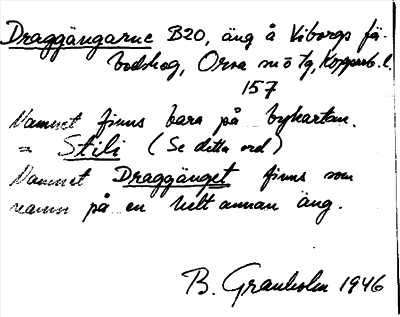 Draggängarne B20, äng å Viborgs fä-
bodskog, Orsa sn ö tg, Kopparb. l.
157
Namnet finns bara på bykartan.
= Stili (Se detta ord)
Namnet Draggänget finns som
namn på en helt annan äng.
B. Granholm 1946